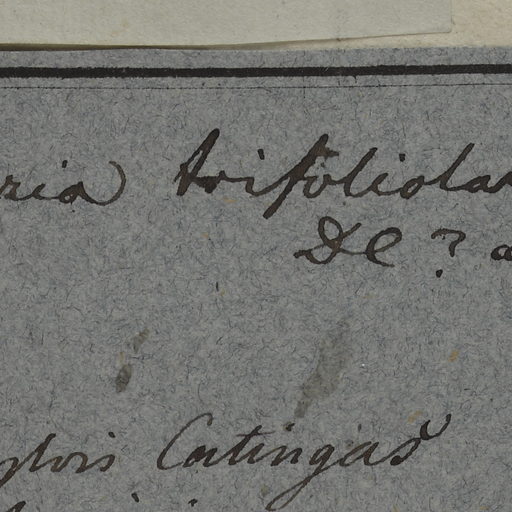 ria trifoliola
DC ? a
ylvis Catingas